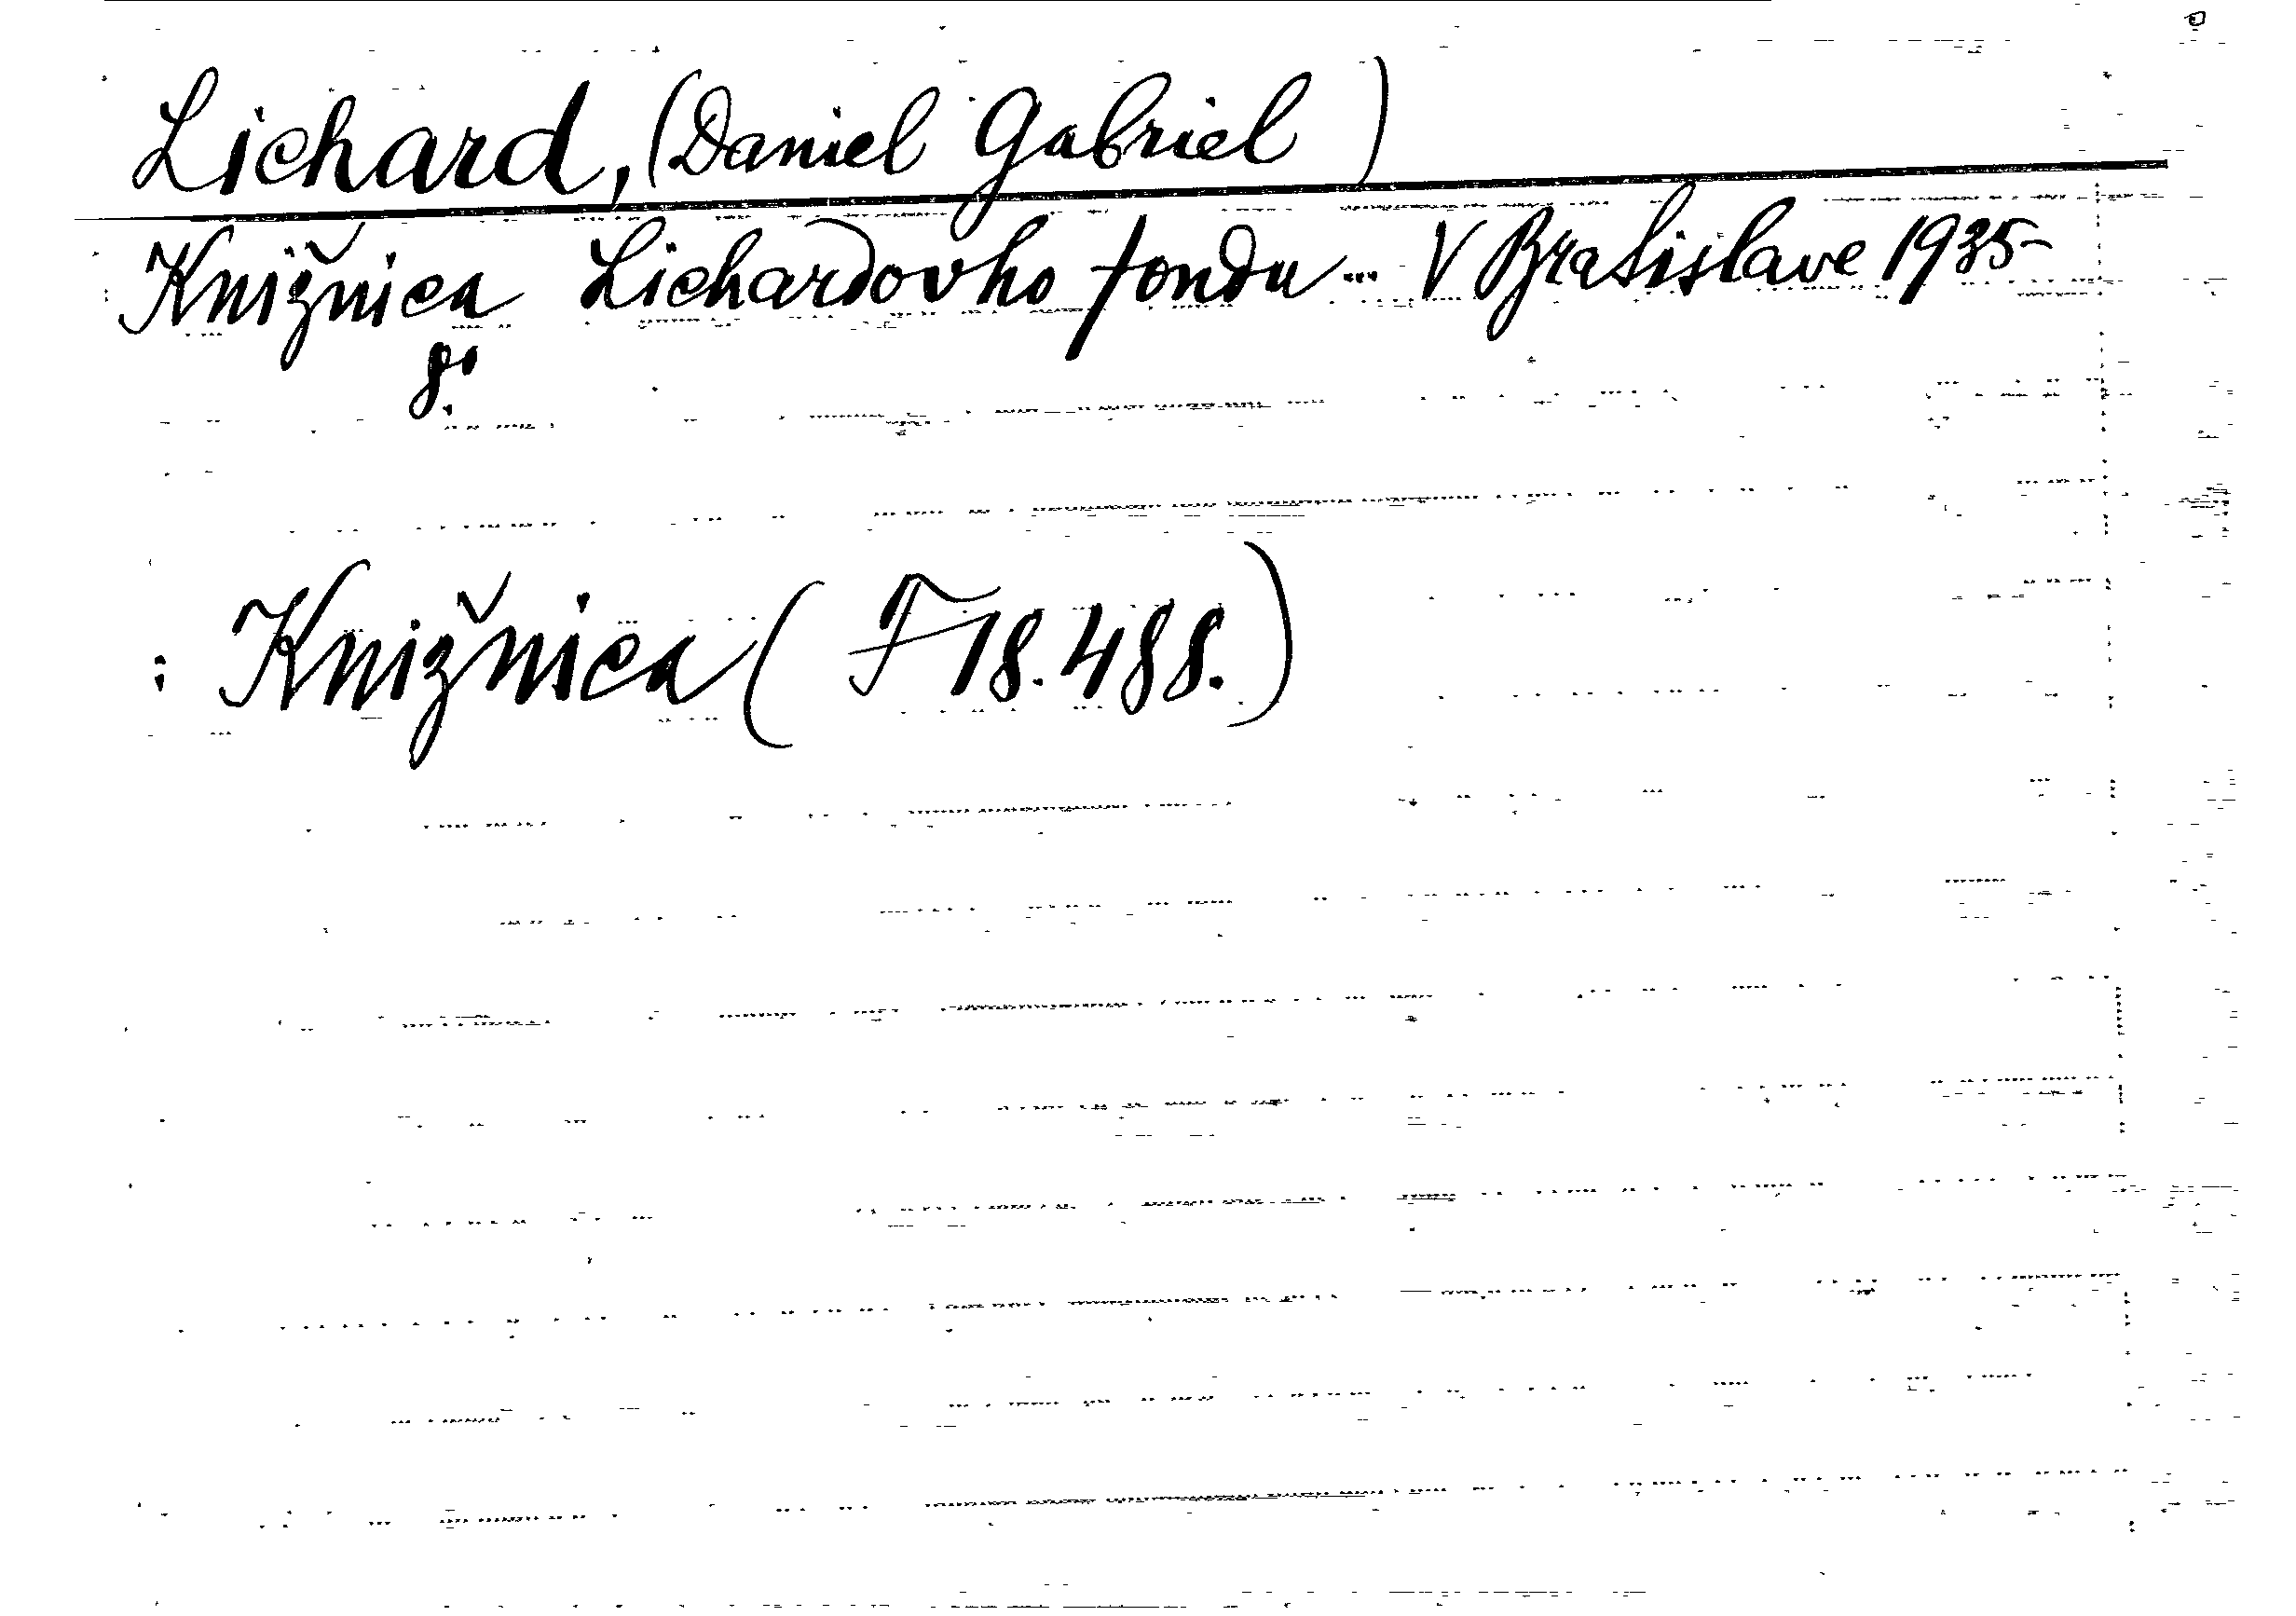 Lichard, (Daniel Gabriel)
Knižnica Lichardovho fondu ... V Bratislave 1935-
8°.
: Knižnica (F 18.488.)